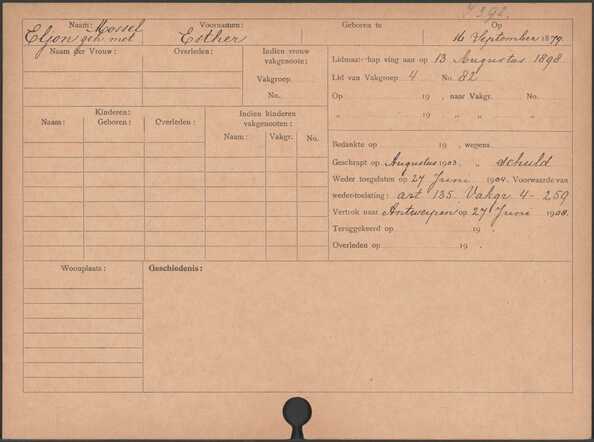 7392.
Naam: Mossel Voornamen: Geboren te Op
Eljon geh met Esther 16 September 1879.
Naam der Vrouw: Overleden: Indien vrouw vakgenoote:
Vakgroep.
No.
Lidmaatschap ving aan op 13 Augustus 1898
Lid van Vakgroep 4 No. 82
Op 19 , naar Vakgr. No.
„ 19 , „ „ „
Kinderen:
Naam: Geboren: Overleden:
Indien kinderen vakgenooten:
Naam: Vakgr. No.
Bedankte op 19 , wegens
Geschrapt op Augustus 1903. „ schuld
Weder toegelaten op 27 Juni 1904. Voorwaarde van
weder-toelating: art 135. Vakgr 4 - 259
Vertrok naar Antwerpen op 27 Juni 1908.
Teruggekeerd op 19 .
Overleden op 19 .
Woonplaats: Geschiedenis: